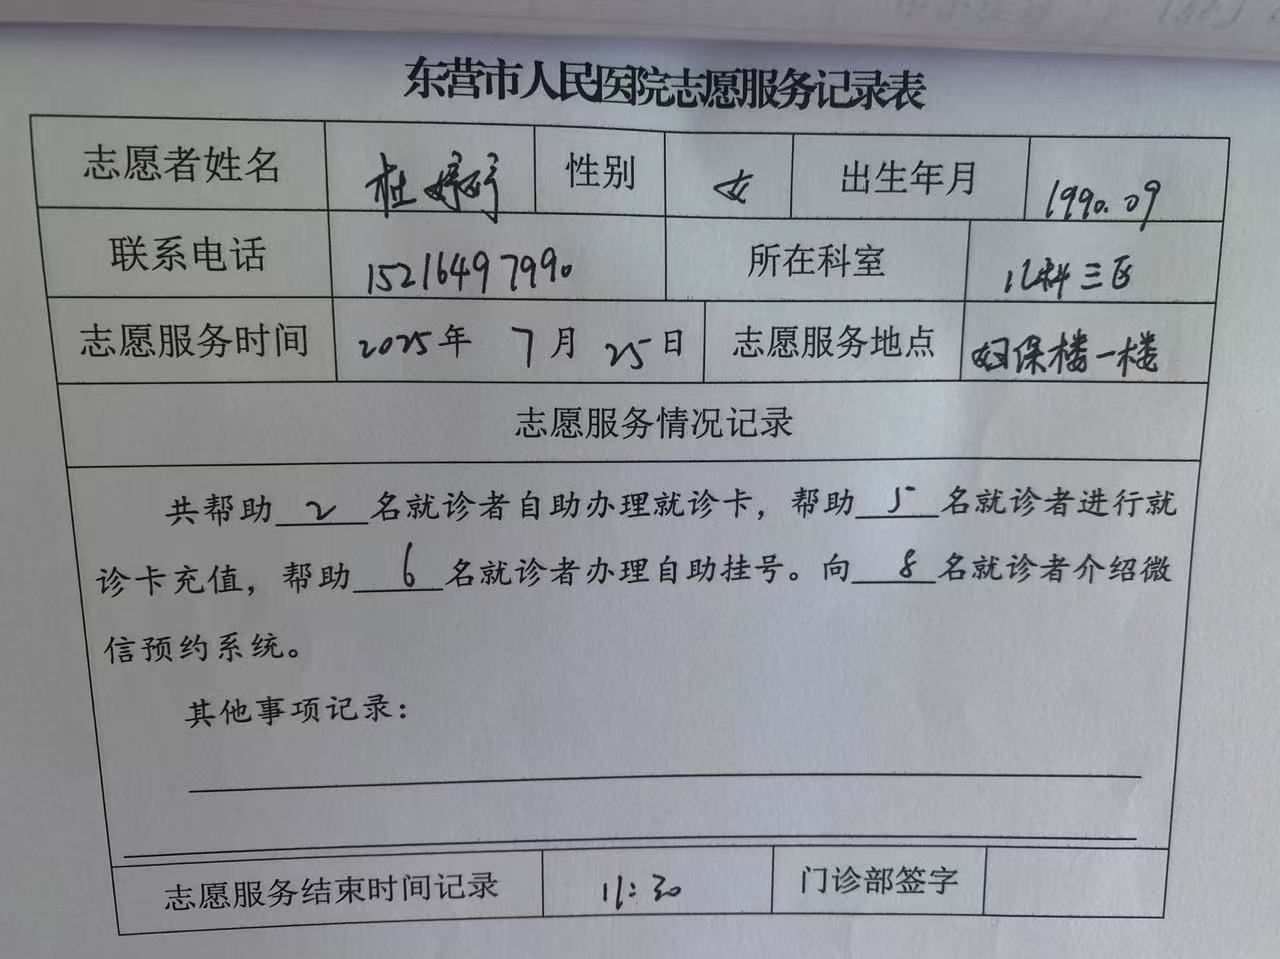 东营市人民医院志愿服务记录表
志愿者姓名 杜婷婷 性别 女 出生年月 1990.09
联系电话 15216497990 所在科室 儿科三区
志愿服务时间 2025年 7月 25日 志愿服务地点 妇保楼一楼
志愿服务情况记录
共帮助 2 名就诊者自助办理就诊卡，帮助 5 名就诊者进行就
诊卡充值，帮助 6 名就诊者办理自助挂号。向 8 名就诊者介绍微
信预约系统。
其他事项记录：
志愿服务结束时间记录 11:30 门诊部签字